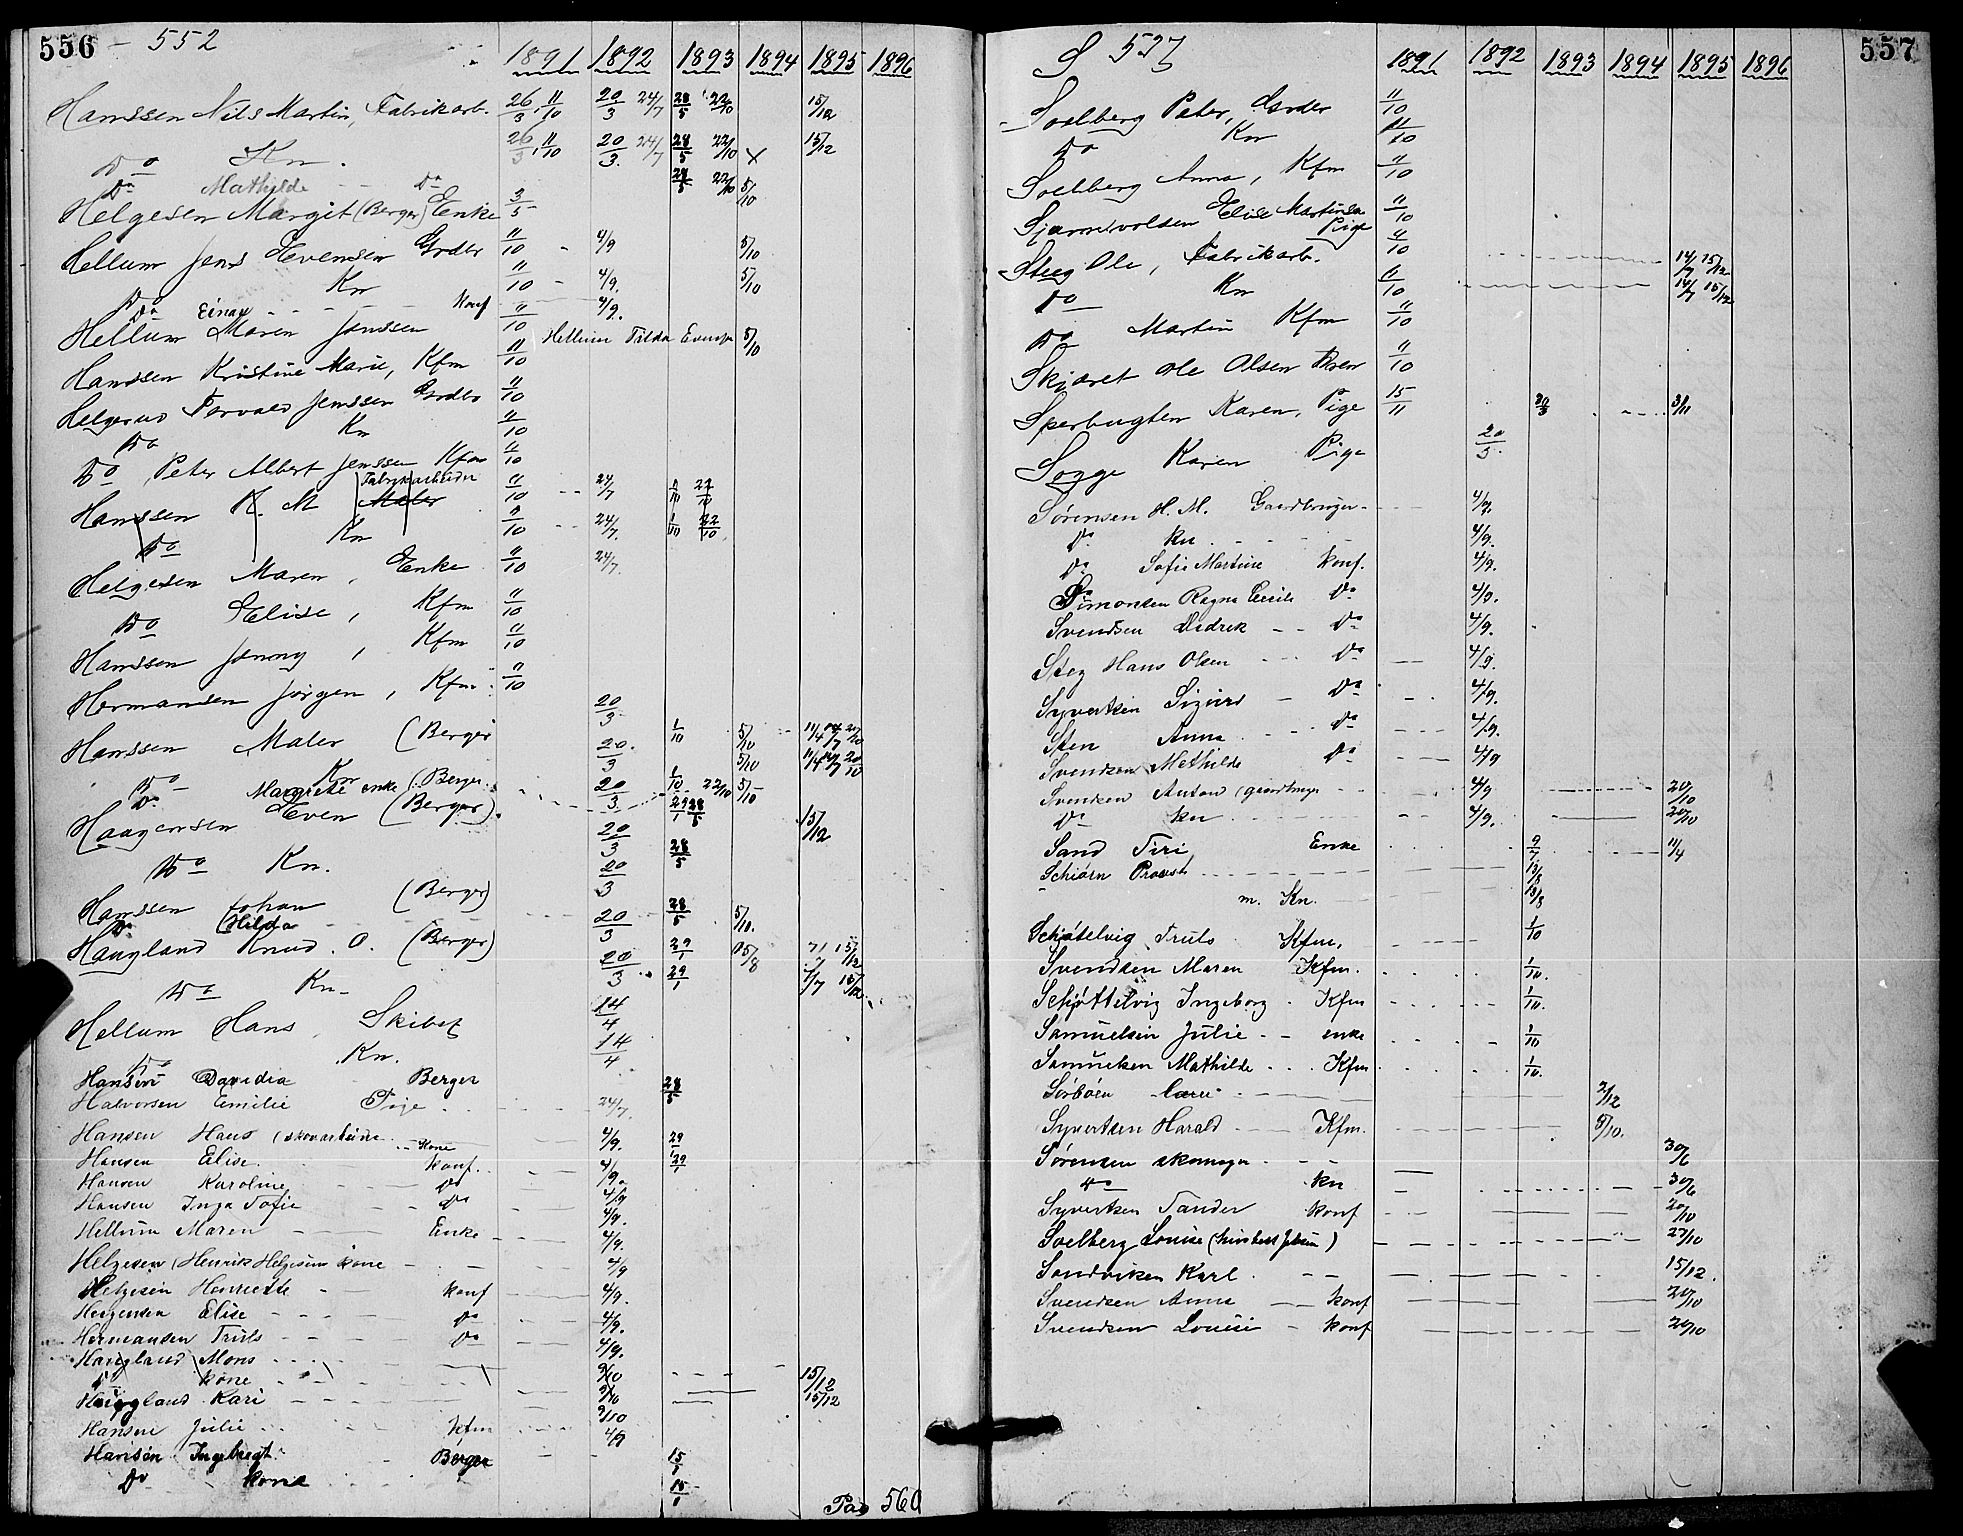 556 - 552
1891 1892 1893 1894 1895 1896
Hanssen Nils Martin, Fabrikarb. 26/3, 11/10 20/3 24/7 28/5 22/10 15/12
Do Kn. 26/3, 11/10 20/3. 24/7 28/5 22/10 x 15/12
Do Mathilde - - Do 28/5 22/10 5/10
Helgesen Margit (Berger) Enke 3/5 -
Hellum Jens Evensen Grdbr 11/10 - 4/9 5/10
Do Kn 11/10 - 4/9. 5/10
Do Einar - - - konf 4/9.
Hellum Maren Jenssen 11/10 Hellum Tilda Evensen 5/10
Hanssen Kristine Marie, Kfm 11/10
Helgerud Torvald Jenssen Grdbr 11/10
Do Kn 11/10
Do, Peter Albert Jenssen Kfm 11/10
Hanssen K. M Fabrikarbeider Maler 11/10 - - 24/7 1/10 22/10
Do Kn 11/10 - - 24/7. 1/10 22/10
Helgesen Maren, Enke 11/10 24/7
Do Elise, Kfm 11/10
Hanssen Jenny, Kfm 11/10
Hermansen Jörgen, Kfm 11/10
Hanssen Maler (Berger 20/3. 1/10 5/10 11/4 14/7 20/10
Do Kn (Berger 20/3 1/10 5/10 11/4 14/7 20/10
Do Margrete enke 20/3 22/10 5/10
Haagensen Even (Berger). 20/3 29/1 28/5 15/12
Do Kn. 20/3 28/5
Hanssen Johan (Berger)
Do Hilda 20/3 28/5 5/10.
Haugland Knud. O. (Berger) 20/3 29/1 15/8 15/12
Do Kn- 29/1 15/12
Hellum Hans, Skibet 14/4
Do Kn. 14/4
Hansen Davidia Berger 28/5
Halvorsen Emilie Pige 24/7.
Hansen Hans (skovarbeider 4/9. 29/1
Hansen Elise. - Kone 4/9. 29/1
Hansen Karoline konf. 4/9
Hansen Inga Sofie Do 4/9.
Hellum Maren Enke 4/9.
Helgesen (Henrik Helgesens kone 4/9
Helgesen Henriette konf 4/9.
Helgesen Elise Do 4/9.
Hermansen Truls Do 4/9.
Haugland Mons 9/10 15/12
Do kone 9/10 15/12
Haugland Kari 9/10
Hansen Julie Kfm 4/9
Hansen Ingebregt Berger 15/1
Do kone 15/1
Pag 560
557
S 527
1891 1892 1893 1894 1895 1896
Soelberg Peter, Grdbr 11/10
Do Kn 11/10
Soelberg Anna, Kfm 11/10
Elise Martinsen Pige 11/10
Steg Ole, Fabrikarb. 11/10 14/7 15/12
Do Kn 11/10 14/7 15/12
Do Martin Kfm 11/10
Skjæret Ole Olsen 11/10
Sperbugten Karen, Pige 15/11 30/3 3/11
Sogge Karen Pige 20/5.
Sørensen H. M. Gaardbruger 4/9.
Do kn. 4/9.
Do Sofie Martine konf. 4/9.
Simonsen Ragna Do 4/9.
Svendsen Didrik - - Do 4/9.
Steg Hans Olsen Do 4/9.
Syvertsen Sigurd - Do 4/9.
Sten Anna Do 4/9.
Svendsen Methilde Do 4/9
Svendsen Anton (gaardbruger 4/9 20/10
Do kn 4/9. 20/10
Sand Siri Enke 9/7 11/4
Schiørn Provst 13/8
m. Kn. 13/8
Schjøtelvig Truls Kfm. 1/10
Svendsen Maren Kfm. 1/10.
Schjøttelvig Ingeborg. Kfm 1/10.
Samuelsen Julie - - enke 1/10
Samuelsen Mathilde Kfm 1/10.
Sørbøen 2/12
Syvertsen Harald Kfm. 5/10.
Sørensen skomager 30/6
Do kn 30/6
Syvertsen Sander konf 20/10
Soelberg Louise 27/10
Sandviken Karl 15/12.
Svendsen Anna konf 20/10
Svendsen Louise - konf 20/10